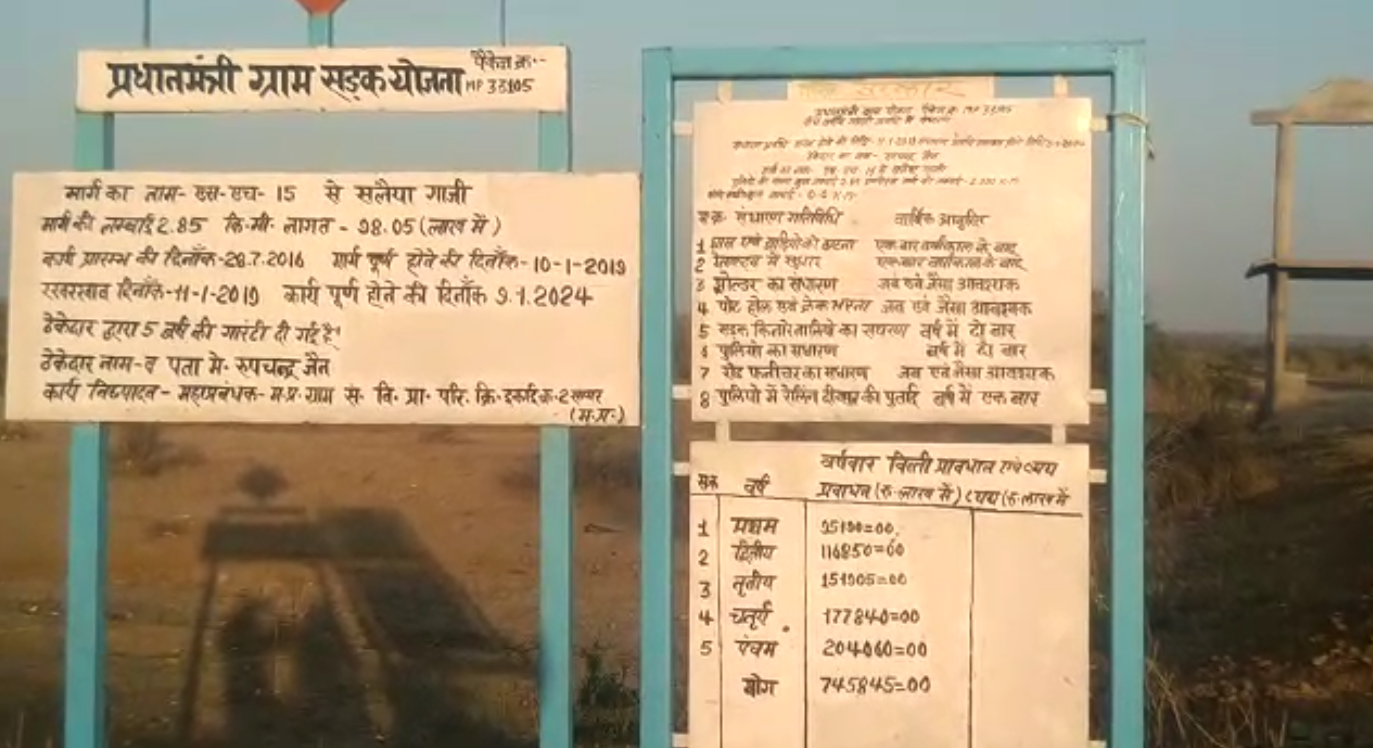 प्रधानमंत्री ग्राम सड़क योजना
पैकेज क्र.-
MP 33105
मार्ग का नाम- एस-एच- 15 से सलैया गाजी
मार्ग की लम्बाई 2.85 कि.मी. लागत - 98.05 (लाख में)
कार्य प्रारम्भ की दिनाँक- 28.7.2016 मार्ग पूर्ण होने की दिनाँक- 10-1-2019
रखरखाव दिनाँक- 11-1-2019 कार्य पूर्ण होने की दिनाँक 9.1.2024
ठेकेदार द्वारा 5 वर्ष की गारंटी दी गई है।
ठेकेदार नाम- व पता मे. रुपचन्द्र जैन
कार्य निष्पादन- महाप्रबंधक- म.प्र. ग्राम स. वि. प्रा. परि. क्रि. इकाई क्र-2 सागर
(म.प्र.)
सरकार
स.क्र. संधारण गतिविधि वार्षिक आवृत्ति
1 घास एवं झाड़ियो को हटाना एक बार वर्षाकाल के बाद
2 रेनकट्स में सुधार एक बार वर्षाकाल के बाद
3 शोल्डर का संधारण जब एवं जैसा आवश्यक
4 पोट होल एवं क्रेक भरना जब एवं जैसा आवश्यक
5 सड़क किनारे नालियो का संधारण वर्ष में दो बार
6 पुलियो का संधारण वर्ष में दो बार
7 रोड फर्नीचर का संधारण जब एवं जैसा आवश्यक
8 पुलियो में रेलिंग दीवार की पुताई वर्ष में एक बार
वर्षवार वित्ती प्रावधान एवं व्यय
स.क्र वर्ष प्रावधान (रु. लाख में) व्यय (रु. लाख में
1 प्रथम 95190=00
2 द्वितीय 116850=00
3 तृतीय 151905=00
4 चतुर्थ 177840=00
5 पंचम 204060=00
योग 745845=00